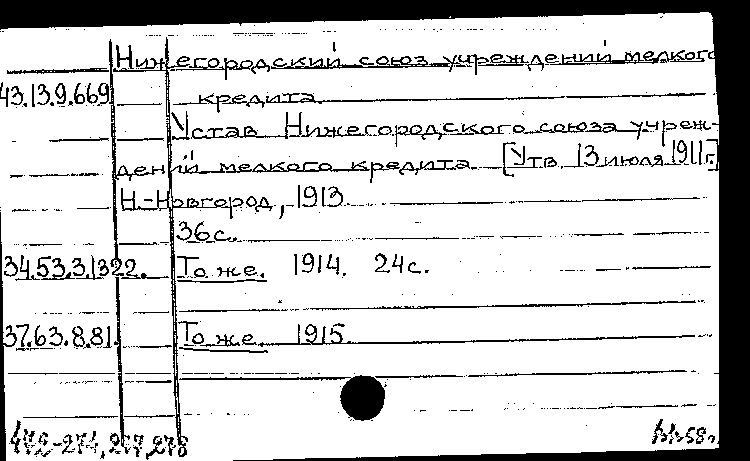 Нижегородский союз учреждений мелкого
43.13.9.669 кредита.
Устав Нижегородского союза учреж-
дений мелкого кредита [Утв. 13 июля 1911 г.]
Н.-Новгород, 1913.
36 с.
34.53.3.1322. То же. 1914. 24 с.
37.63.8.81. То же. 1915.
277, 278